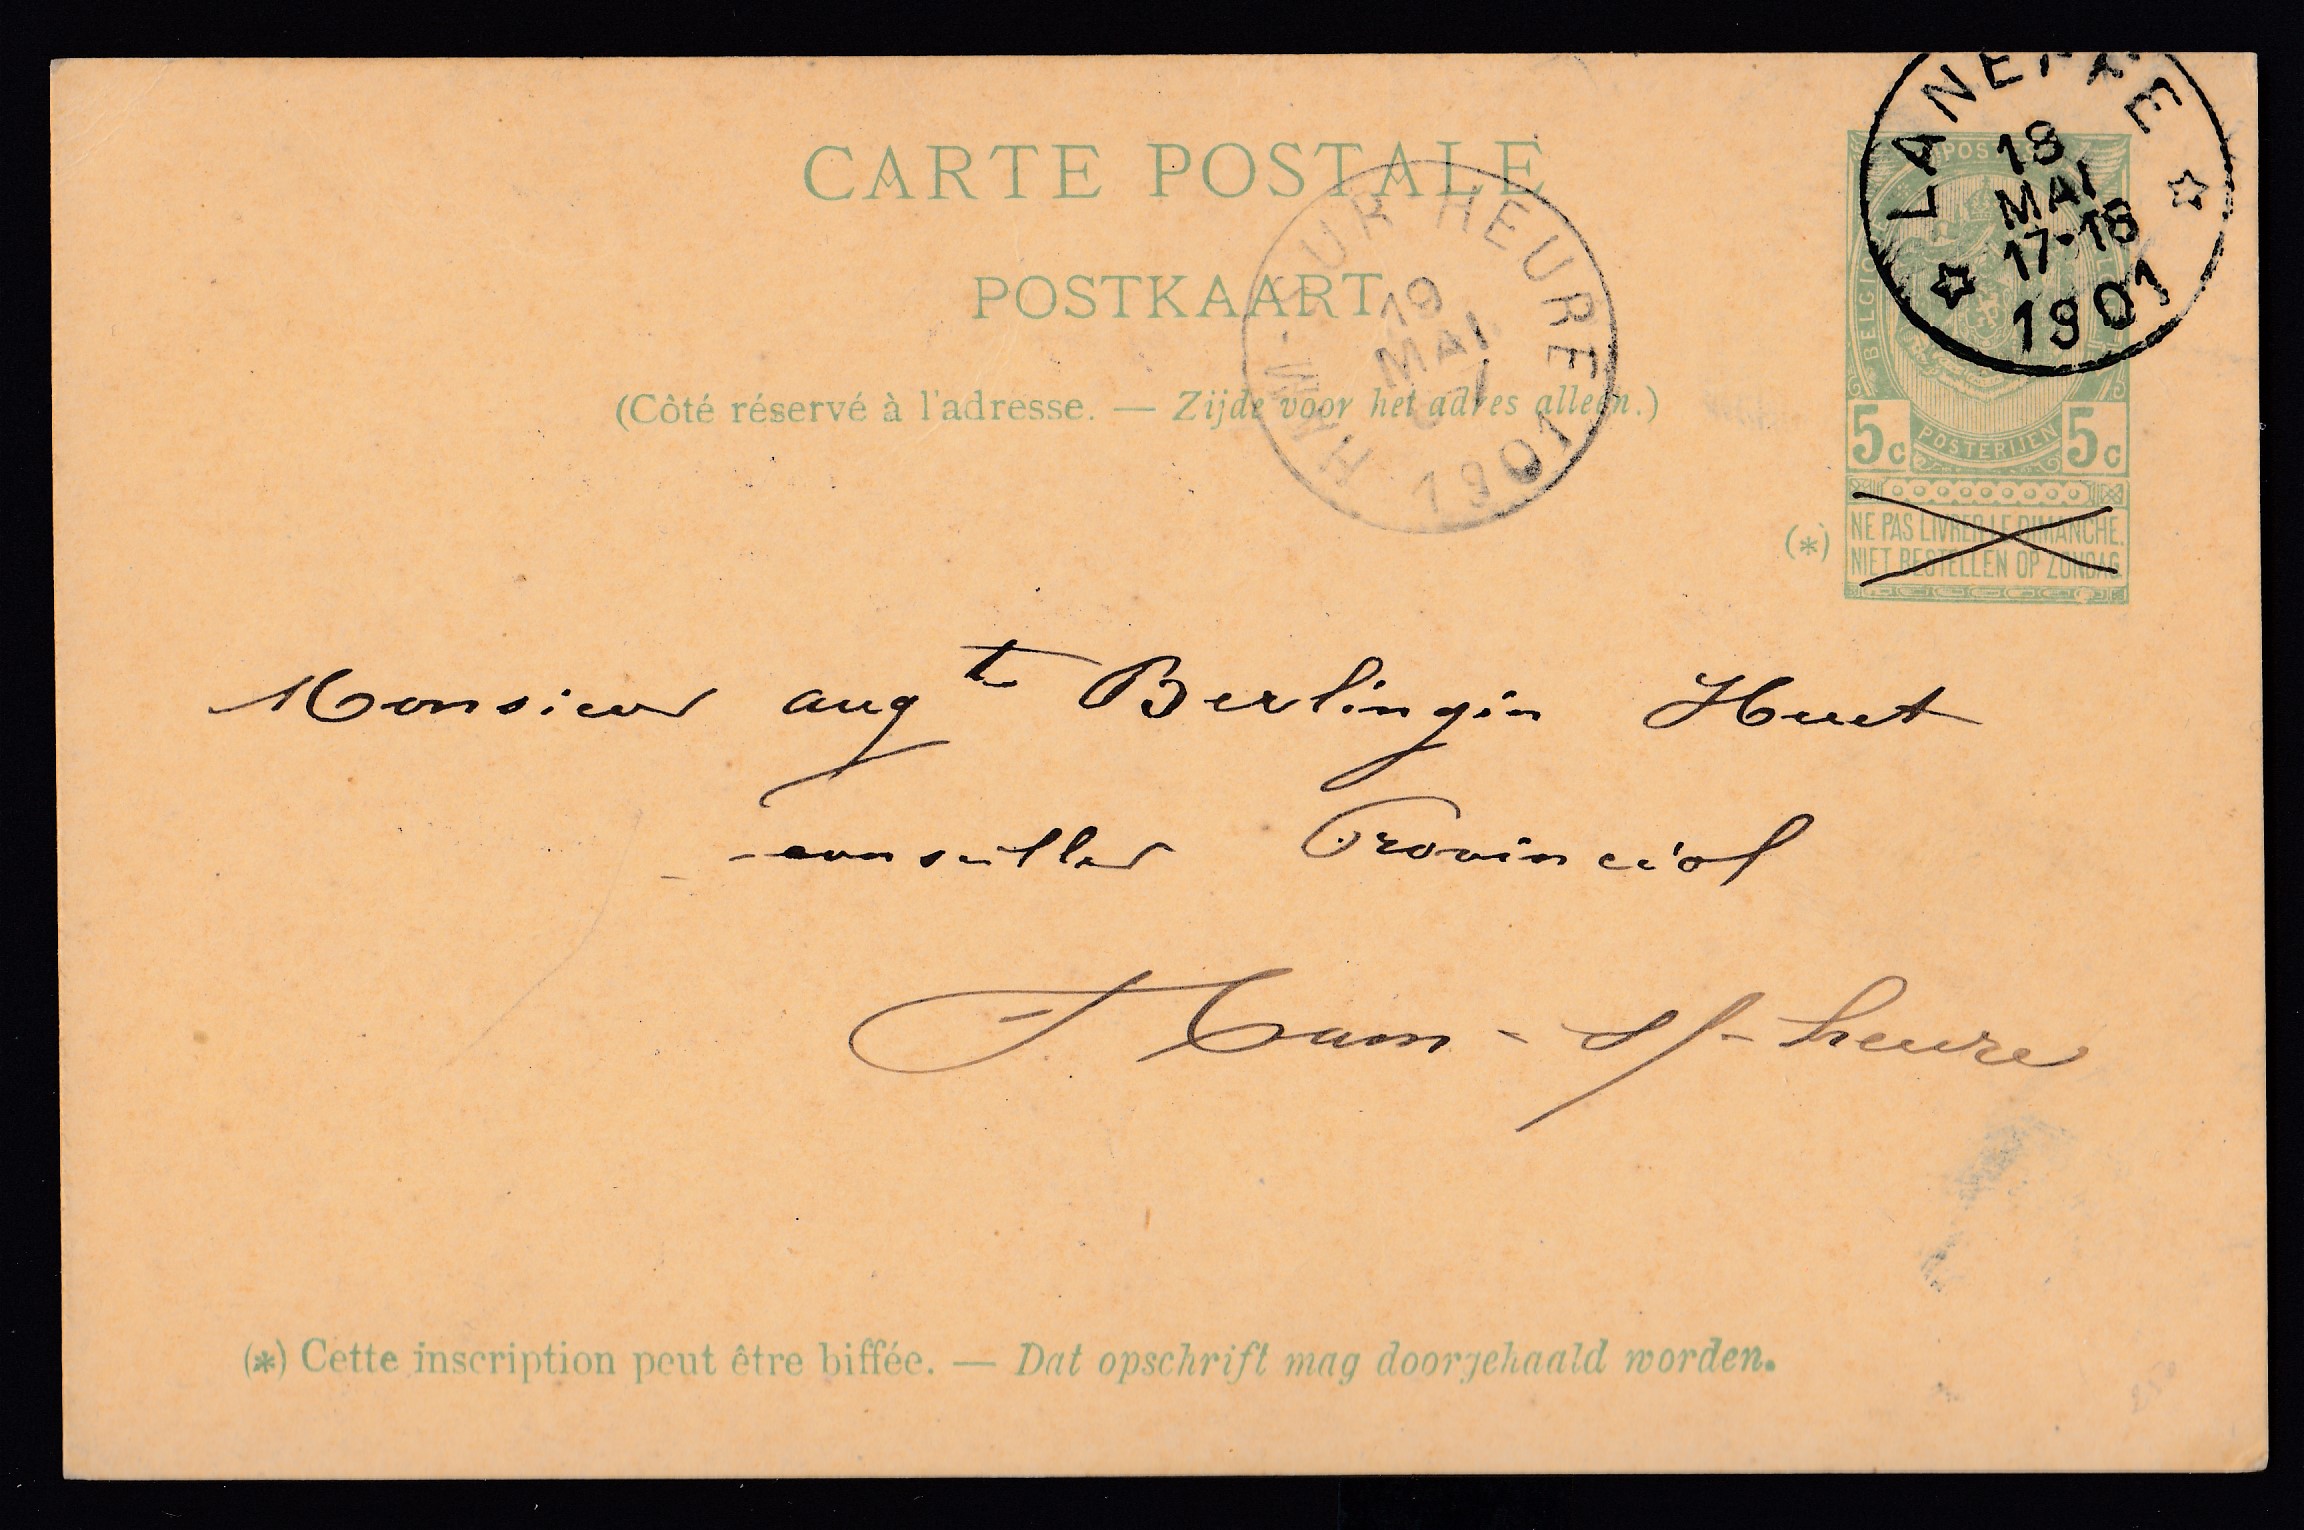 CARTE POSTALE
POSTKAART
(Côté réservé à l'adresse. — Zijde voor het adres alleen.)
LANEFFE
18
MAI
17-18
1901
HAM-SUR HEURE
19
MAI
1901
POSTES
BELGIQUE
5c POSTERIJEN 5c
(*) NE PAS LIVRER LE DIMANCHE.
NIET BESTELLEN OP ZONDAG.
Monsieur augte Berlingin Huet
conseiller Provincial
Ham-s/-heure
(*) Cette inscription peut être biffée. — Dat opschrift mag doorgehaald worden.